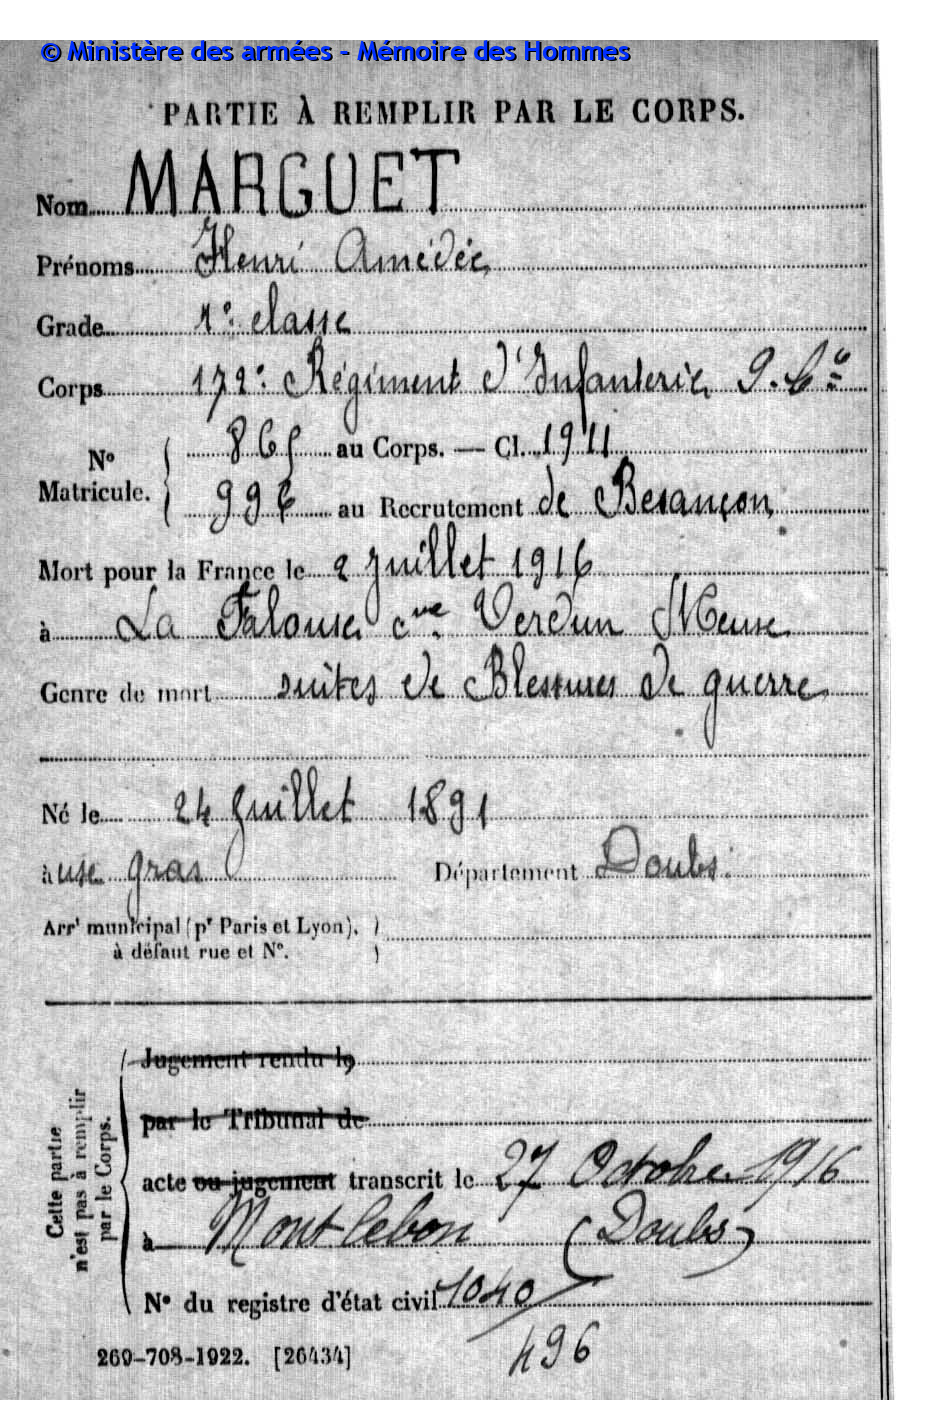 © Ministère des armées - Mémoire des Hommes
PARTIE À REMPLIR PAR LE CORPS.
Nom MARGUET
Prénoms Henri Amédée
Grade 1e classe
Corps 172e Régiment d'Infanterie 9. Cie
No Matricule. 865 au Corps. — Cl. 1911
996 au Recrutement de Besançon
Mort pour la France le 2 Juillet 1916
à La Falouse cne Verdun Meuse
Genre de mort suites de Blessures de guerre
Né le 24 Juillet 1891
à gras Département Doubs
Arrt municipal (pr Paris et Lyon),
à défaut rue et No.
Cette partie n'est pas à remplir par le Corps.
Jugement rendu le
par le Tribunal de
acte ou jugement transcrit le 27 Octobre 1916
à Montlebon (Doubs)
No du registre d'état civil 1040
496
269-708-1922. [26434]